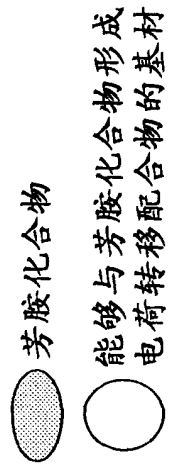 芳胺化合物
能够与芳胺化合物形成
电荷转移配合物的基材